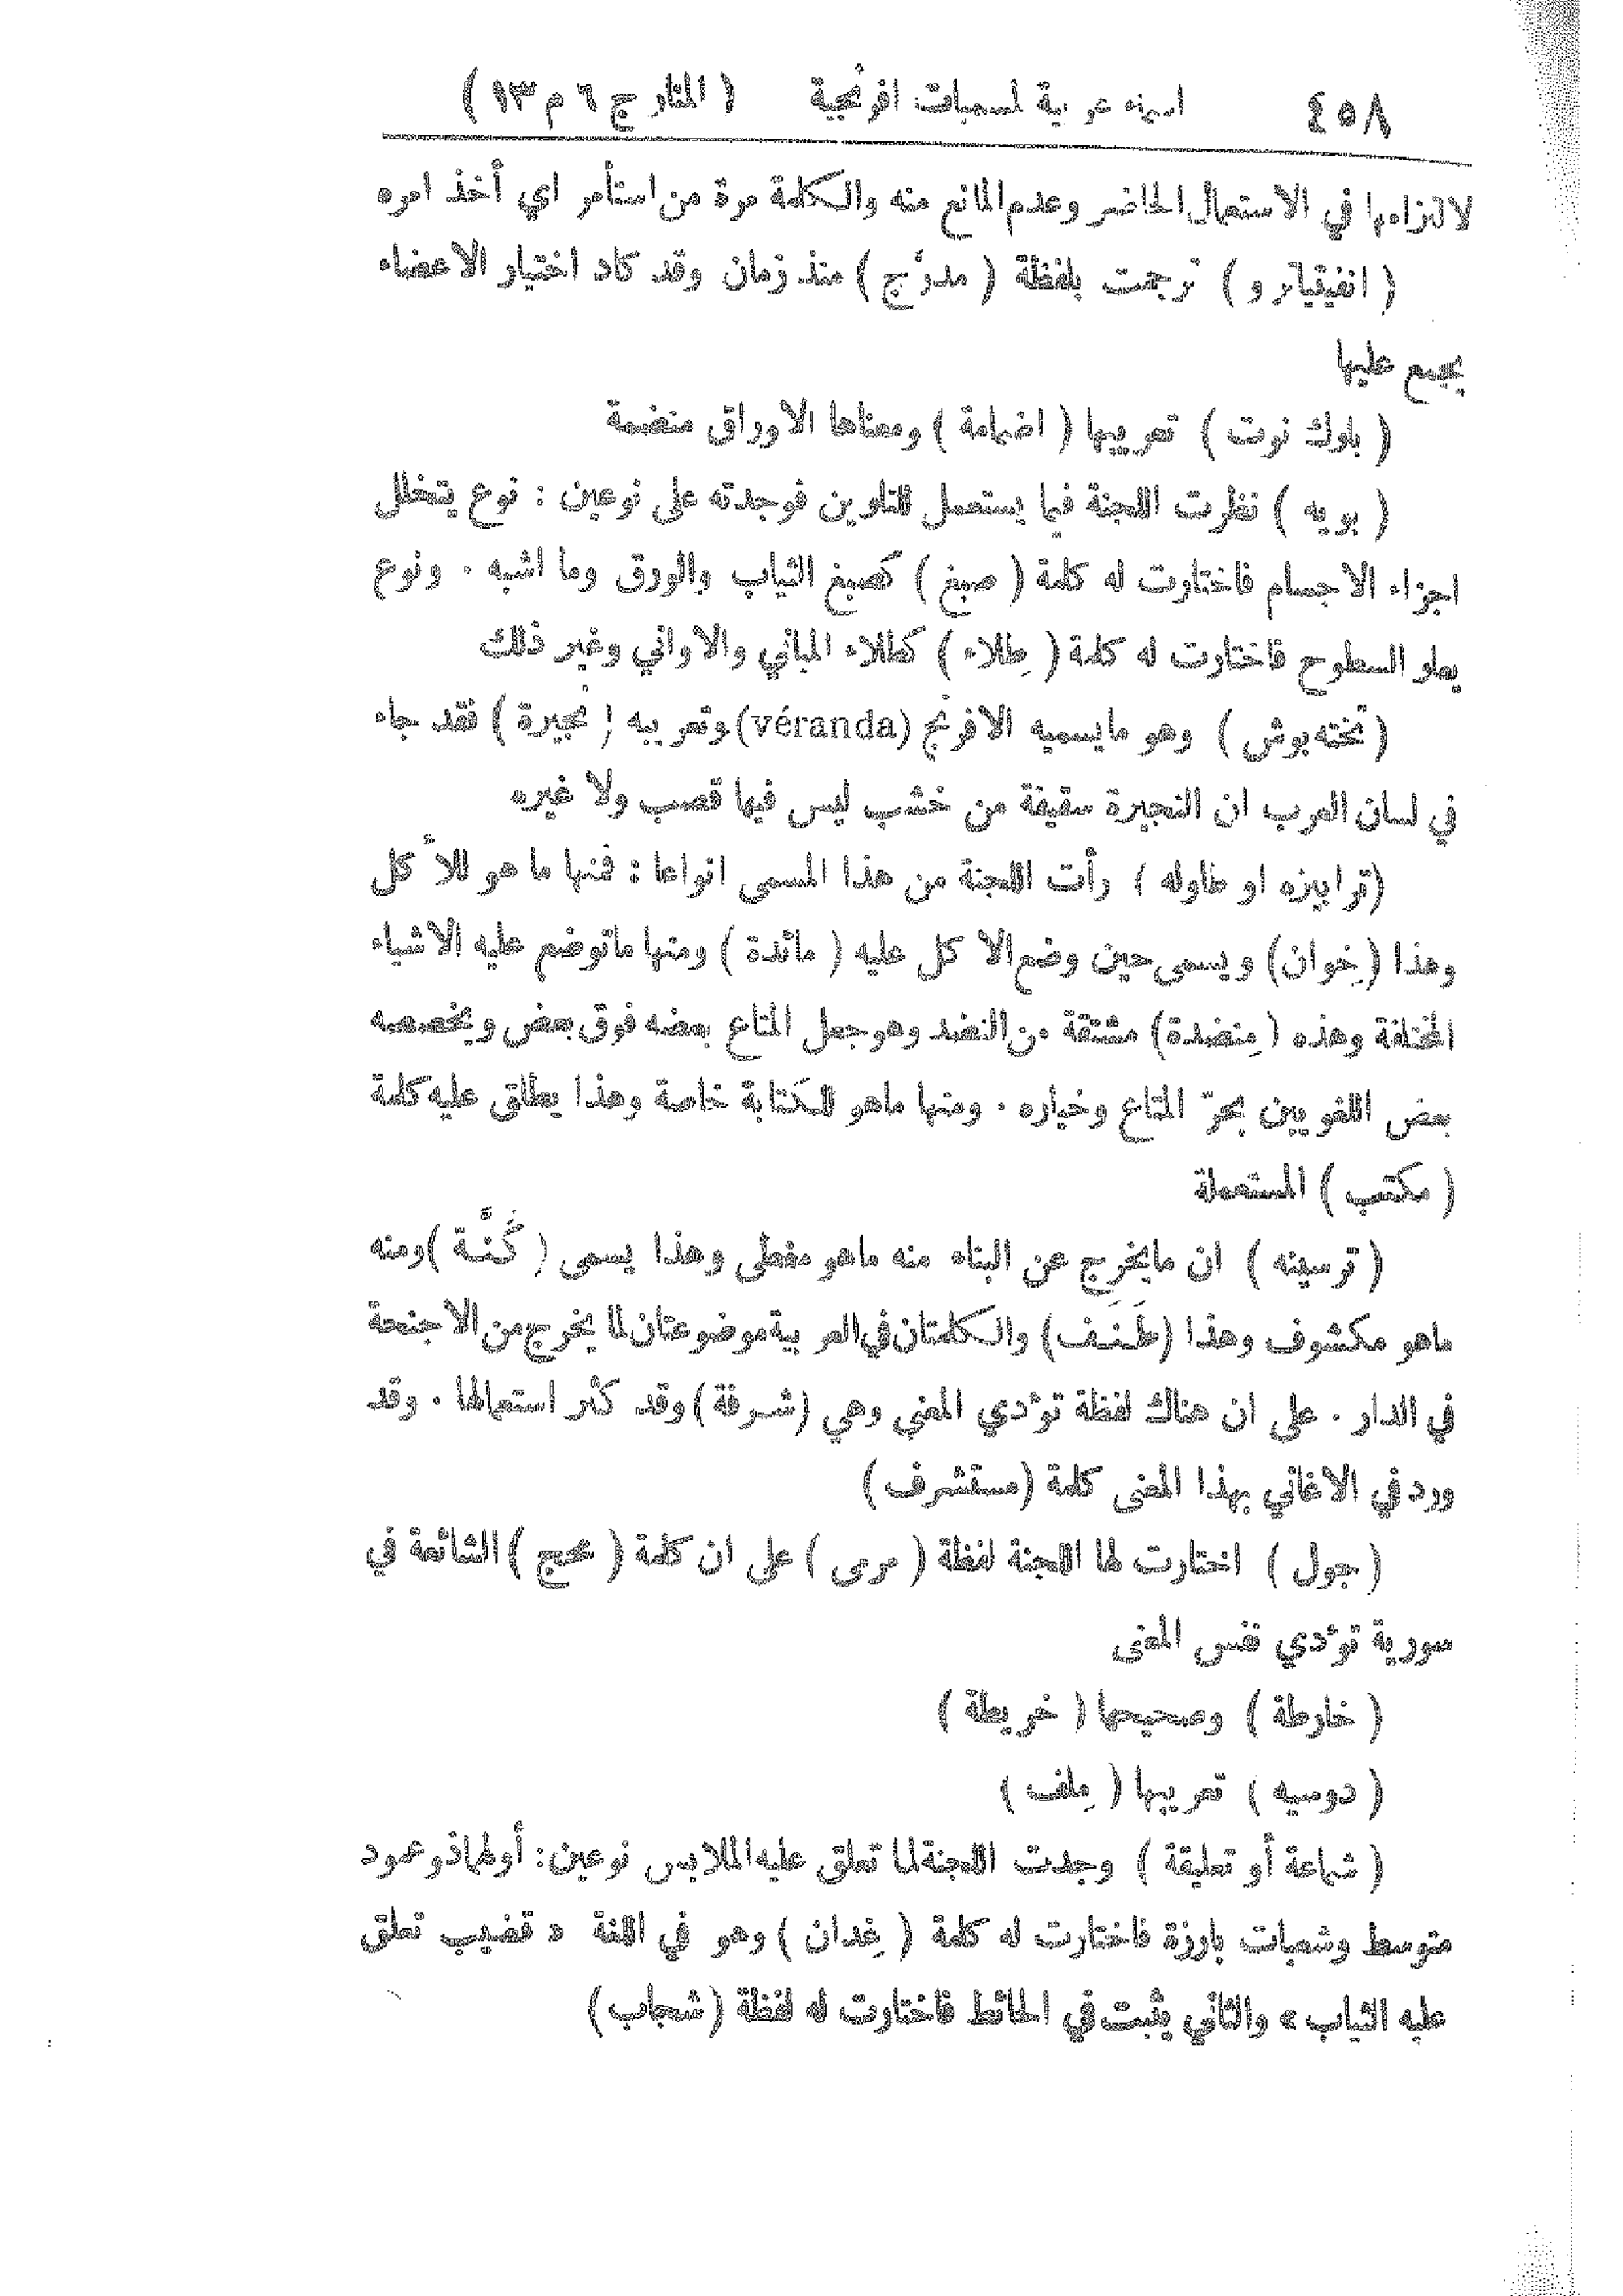 ٤٥٨ اسماء عربية لمسميات افرنجية ( المنار ج ٦ م ١٣ )
لالتزامها في الاستعمال الحاضر وعدم المانع منه والكلمة مرة من استأمر اي أخذ امره
( انفيتياترو ) ترجمت بلفظة ( مدرَّج ) منذ زمان وقد كاد اختيار الاعضاء
يجمع عليها
( بلوك نوت ) تعريبها ( اضمامة ) ومعناها الاوراق منضمة
( بويه ) نظرت اللجنة فيما يستعمل للتلوين فوجدته على نوعين : نوع يتخلل
اجزاء الاجسام فاختارت له كلمة ( صبغ ) كصبغ الثياب والورق وما اشبه . ونوع
يعلو السطوح فاختارت له كلمة ( طِلاء ) كطلاء المباني والاواني وغير ذلك
( تخته بوش ) وهو ما يسميه الافرنج (véranda) وتعريبه ( نجيرة ) فقد جاء
في لسان العرب ان النجيرة سقيفة من خشب ليس فيها قصب ولا غيره
(ترابيزه او طاوله ) رأت اللجنة من هذا المسمى انواعا : فمنها ما هو للأكل
وهذا (خِوان) ويسمى حين وضع الاكل عليه ( مائدة ) ومنها ماتوضع عليه الاشياء
المختلفة وهذه ( مِنضدة) مشتقة من النضد وهو جعل المتاع بعضه فوق بعض ويخصصه
بعض اللغويين بحرّ المتاع وخياره . ومنها ماهو للكتابة خاصة وهذا يطلق عليه كلمة
( مكتب ) المستعملة
( ترسينه ) ان مايخرج عن البناء منه ماهو مغطى وهذا يسمى ( كُنَّة )ومنه
ماهو مكشوف وهذا (طَنَف) والكلمتان في العربية موضوعتان لما يخرج من الاجنحة
في الدار . على ان هناك لفظة تؤدي المعنى وهي (شرفة) وقد كثر استعمالها . وقد
ورد في الاغاني بهذا المعنى كلمة (مستشرف)
( جول ) اختارت لها اللجنة لفظة ( مرمى ) على ان كلمة ( محج ) الشائعة في
سورية تؤدي نفس المعنى
( خارطة ) وصحيحها ( خريطة )
( دوسيه ) تعريبها ( مِلف )
( شماعة أو تعليقة ) وجدت اللجنة لما تعلق عليه الملابس نوعين: أولهما ذو عمود
متوسط وشعبات بارزة فاختارت له كلمة ( غِدان ) وهو في اللغة « قضيب تعلق
عليه الثياب » والثاني يثبت في الحائط فاختارت له لفظة (شجاب)